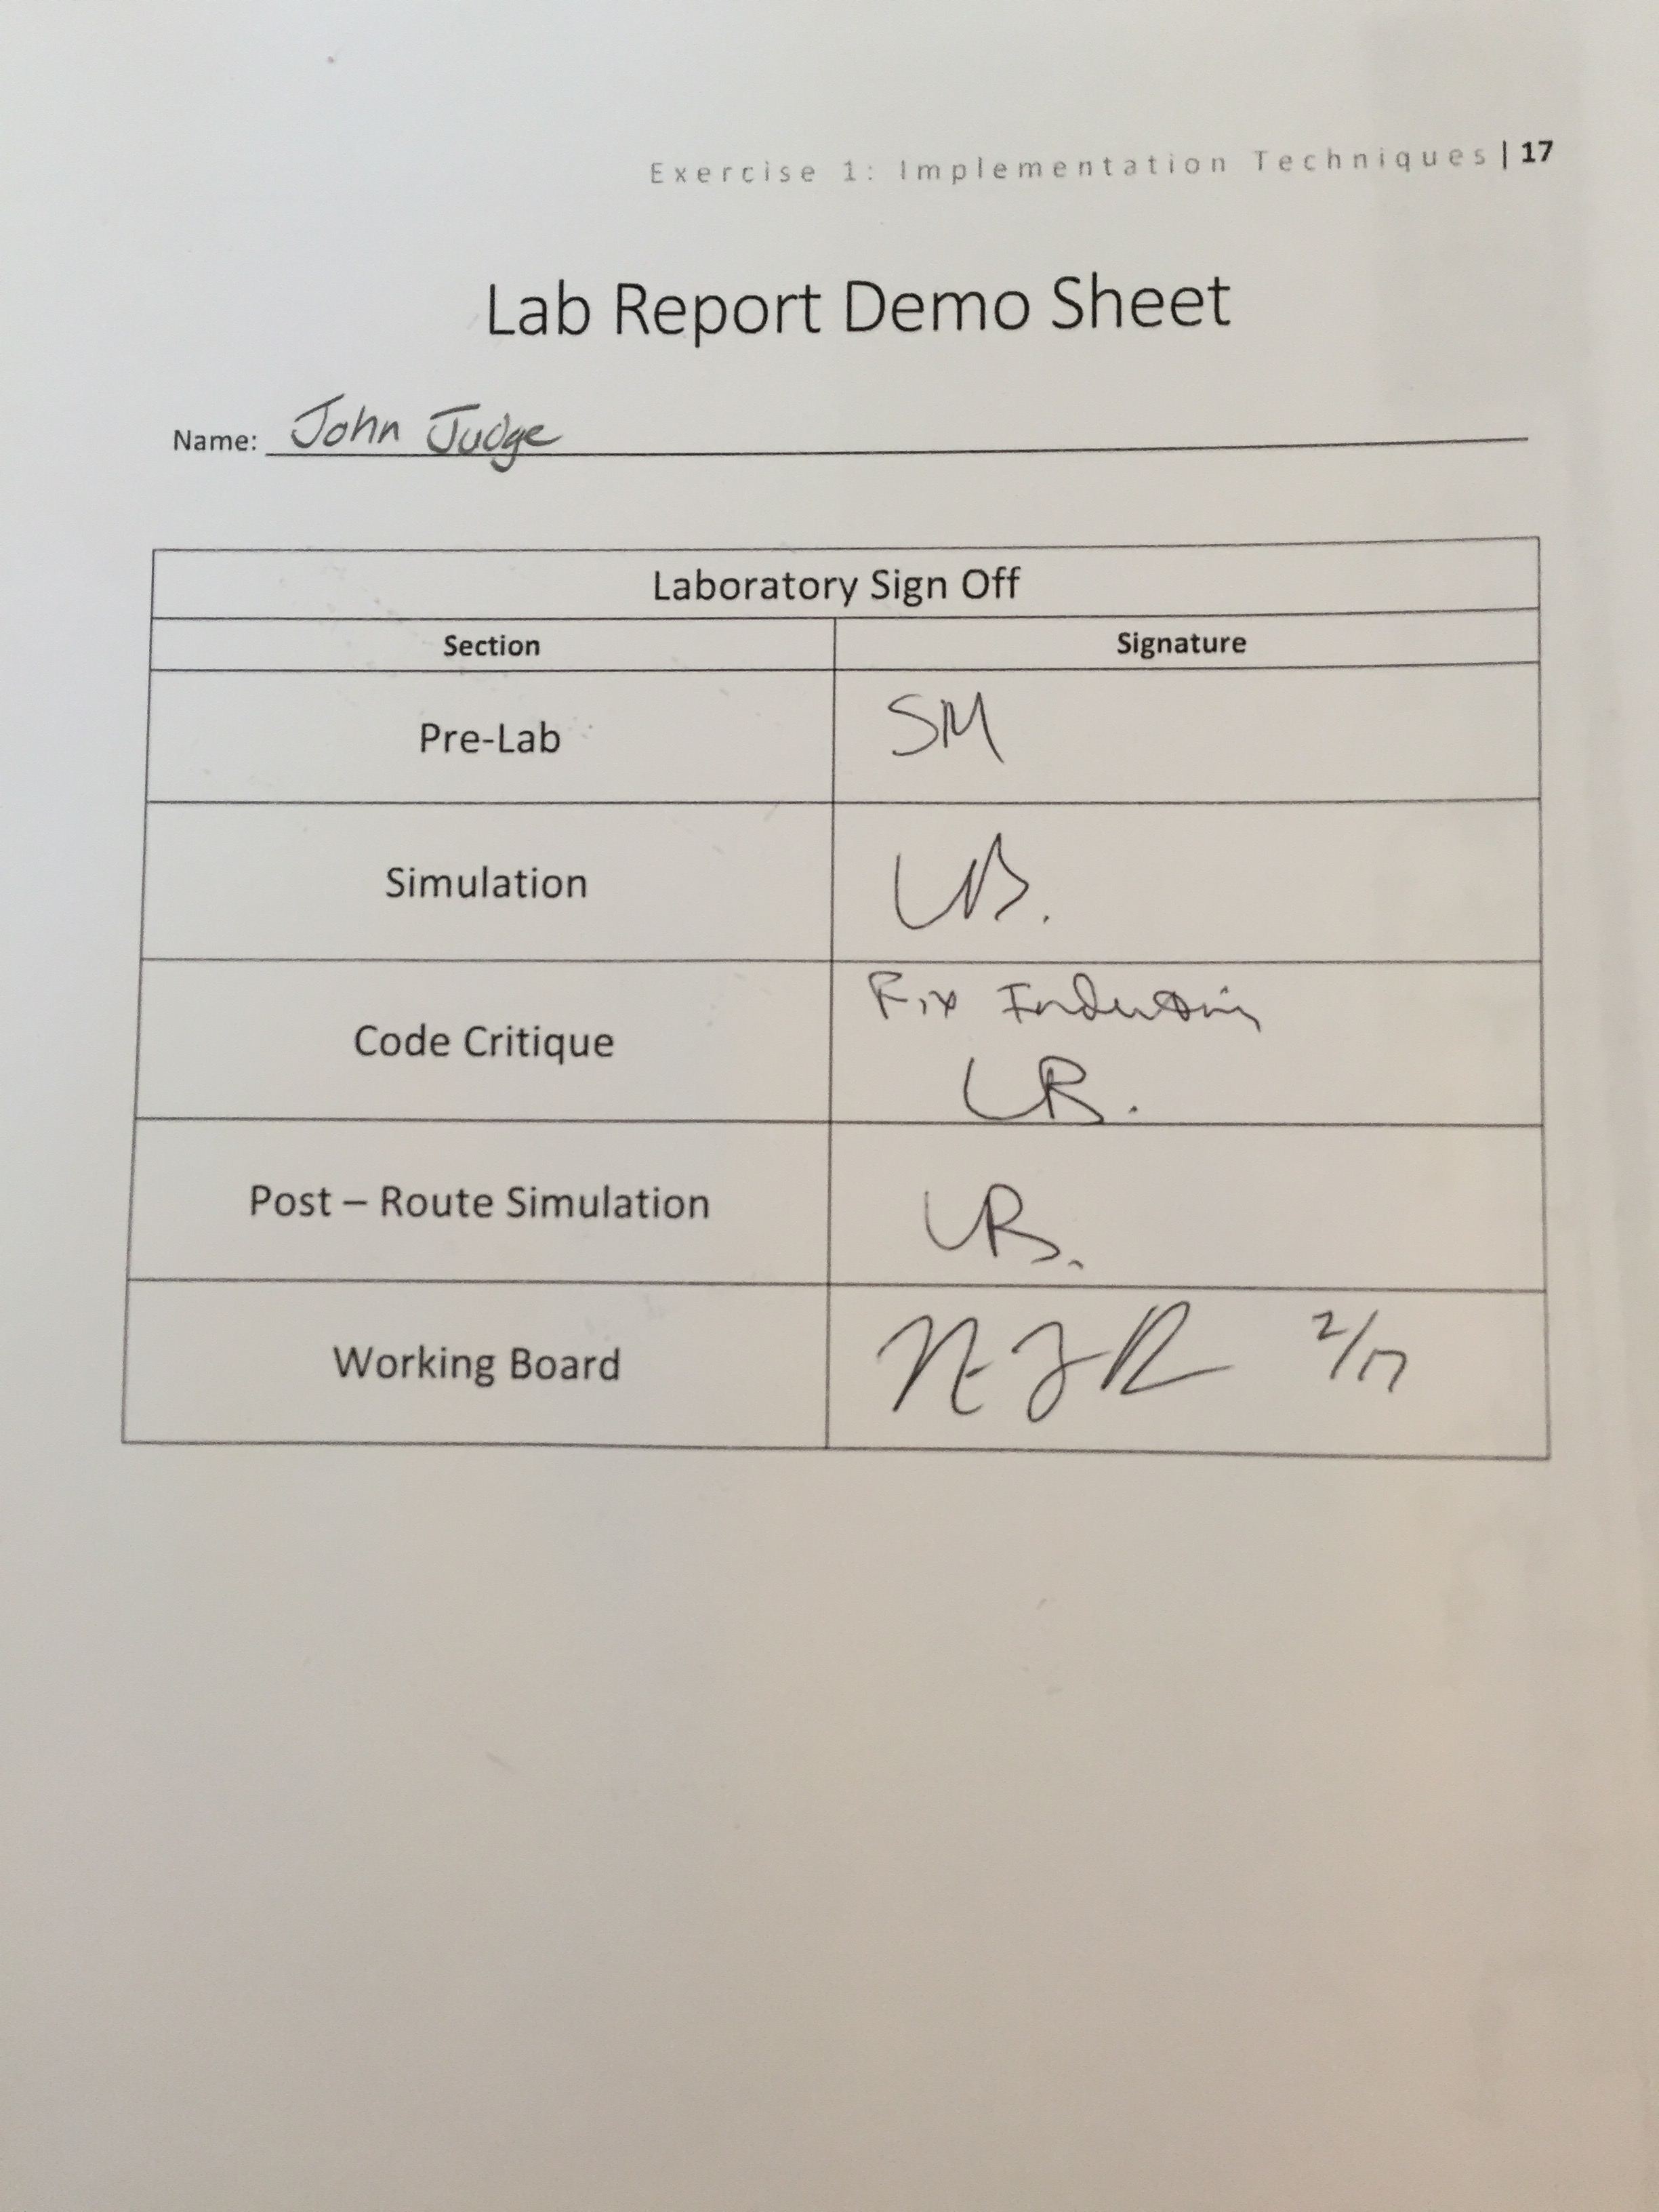 Exercise 1: Implementation Techniques | 17
Lab Report Demo Sheet
Name: John Judge
Laboratory Sign Off
Section Signature
Pre-Lab SM
Simulation
Code Critique Fix
Post – Route Simulation
Working Board 2/17